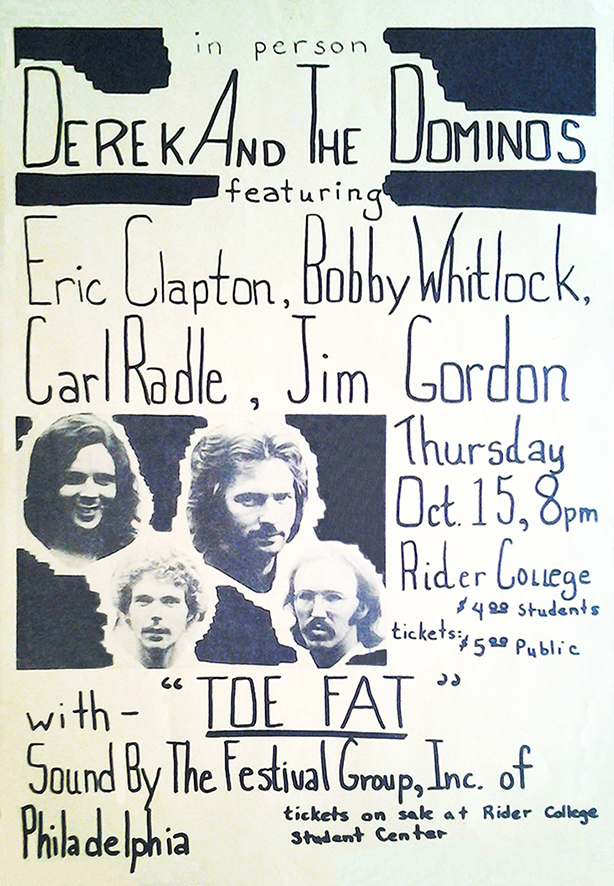 in person
DEREK AND THE DOMINOS
featuring
Eric Clapton, Bobby Whitlock,
Carl Radle, Jim Gordon
Thursday
Oct. 15, 8pm
Rider College
tickets: $4.00 Students
$5.00 Public
with - "TOE FAT"
Sound By The Festival Group, Inc. of
Philadelphia
tickets on sale at Rider College
Student Center